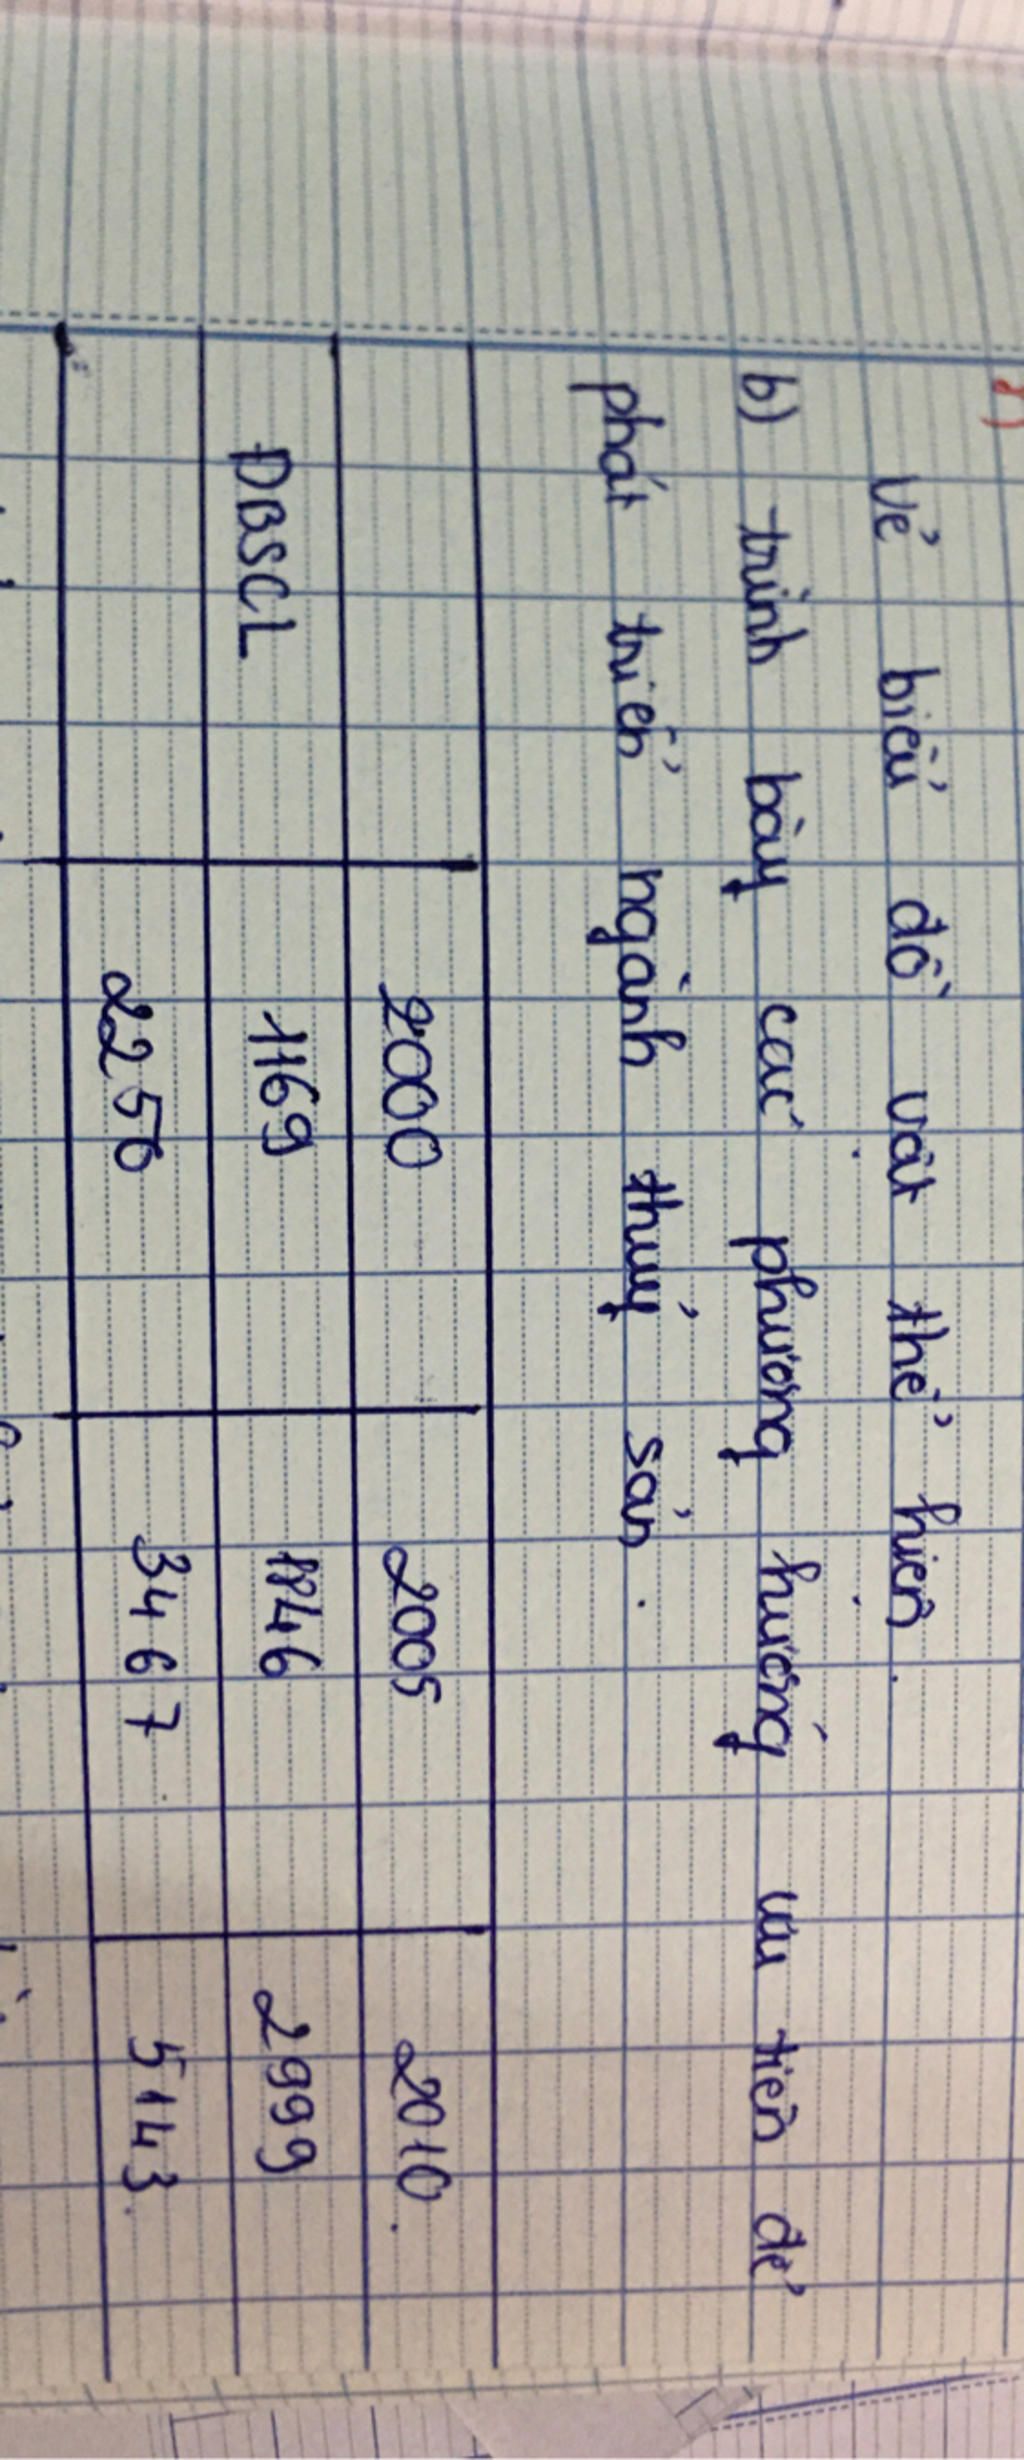 Vẻ biểu đồ vật thể hiện.
b) trình bày các phương hướng ưu tiên để
phát triển ngành thuỷ sản.
2000 2005 2010.
ĐBSCL 1169 1846 2999
2250 3467 5143.